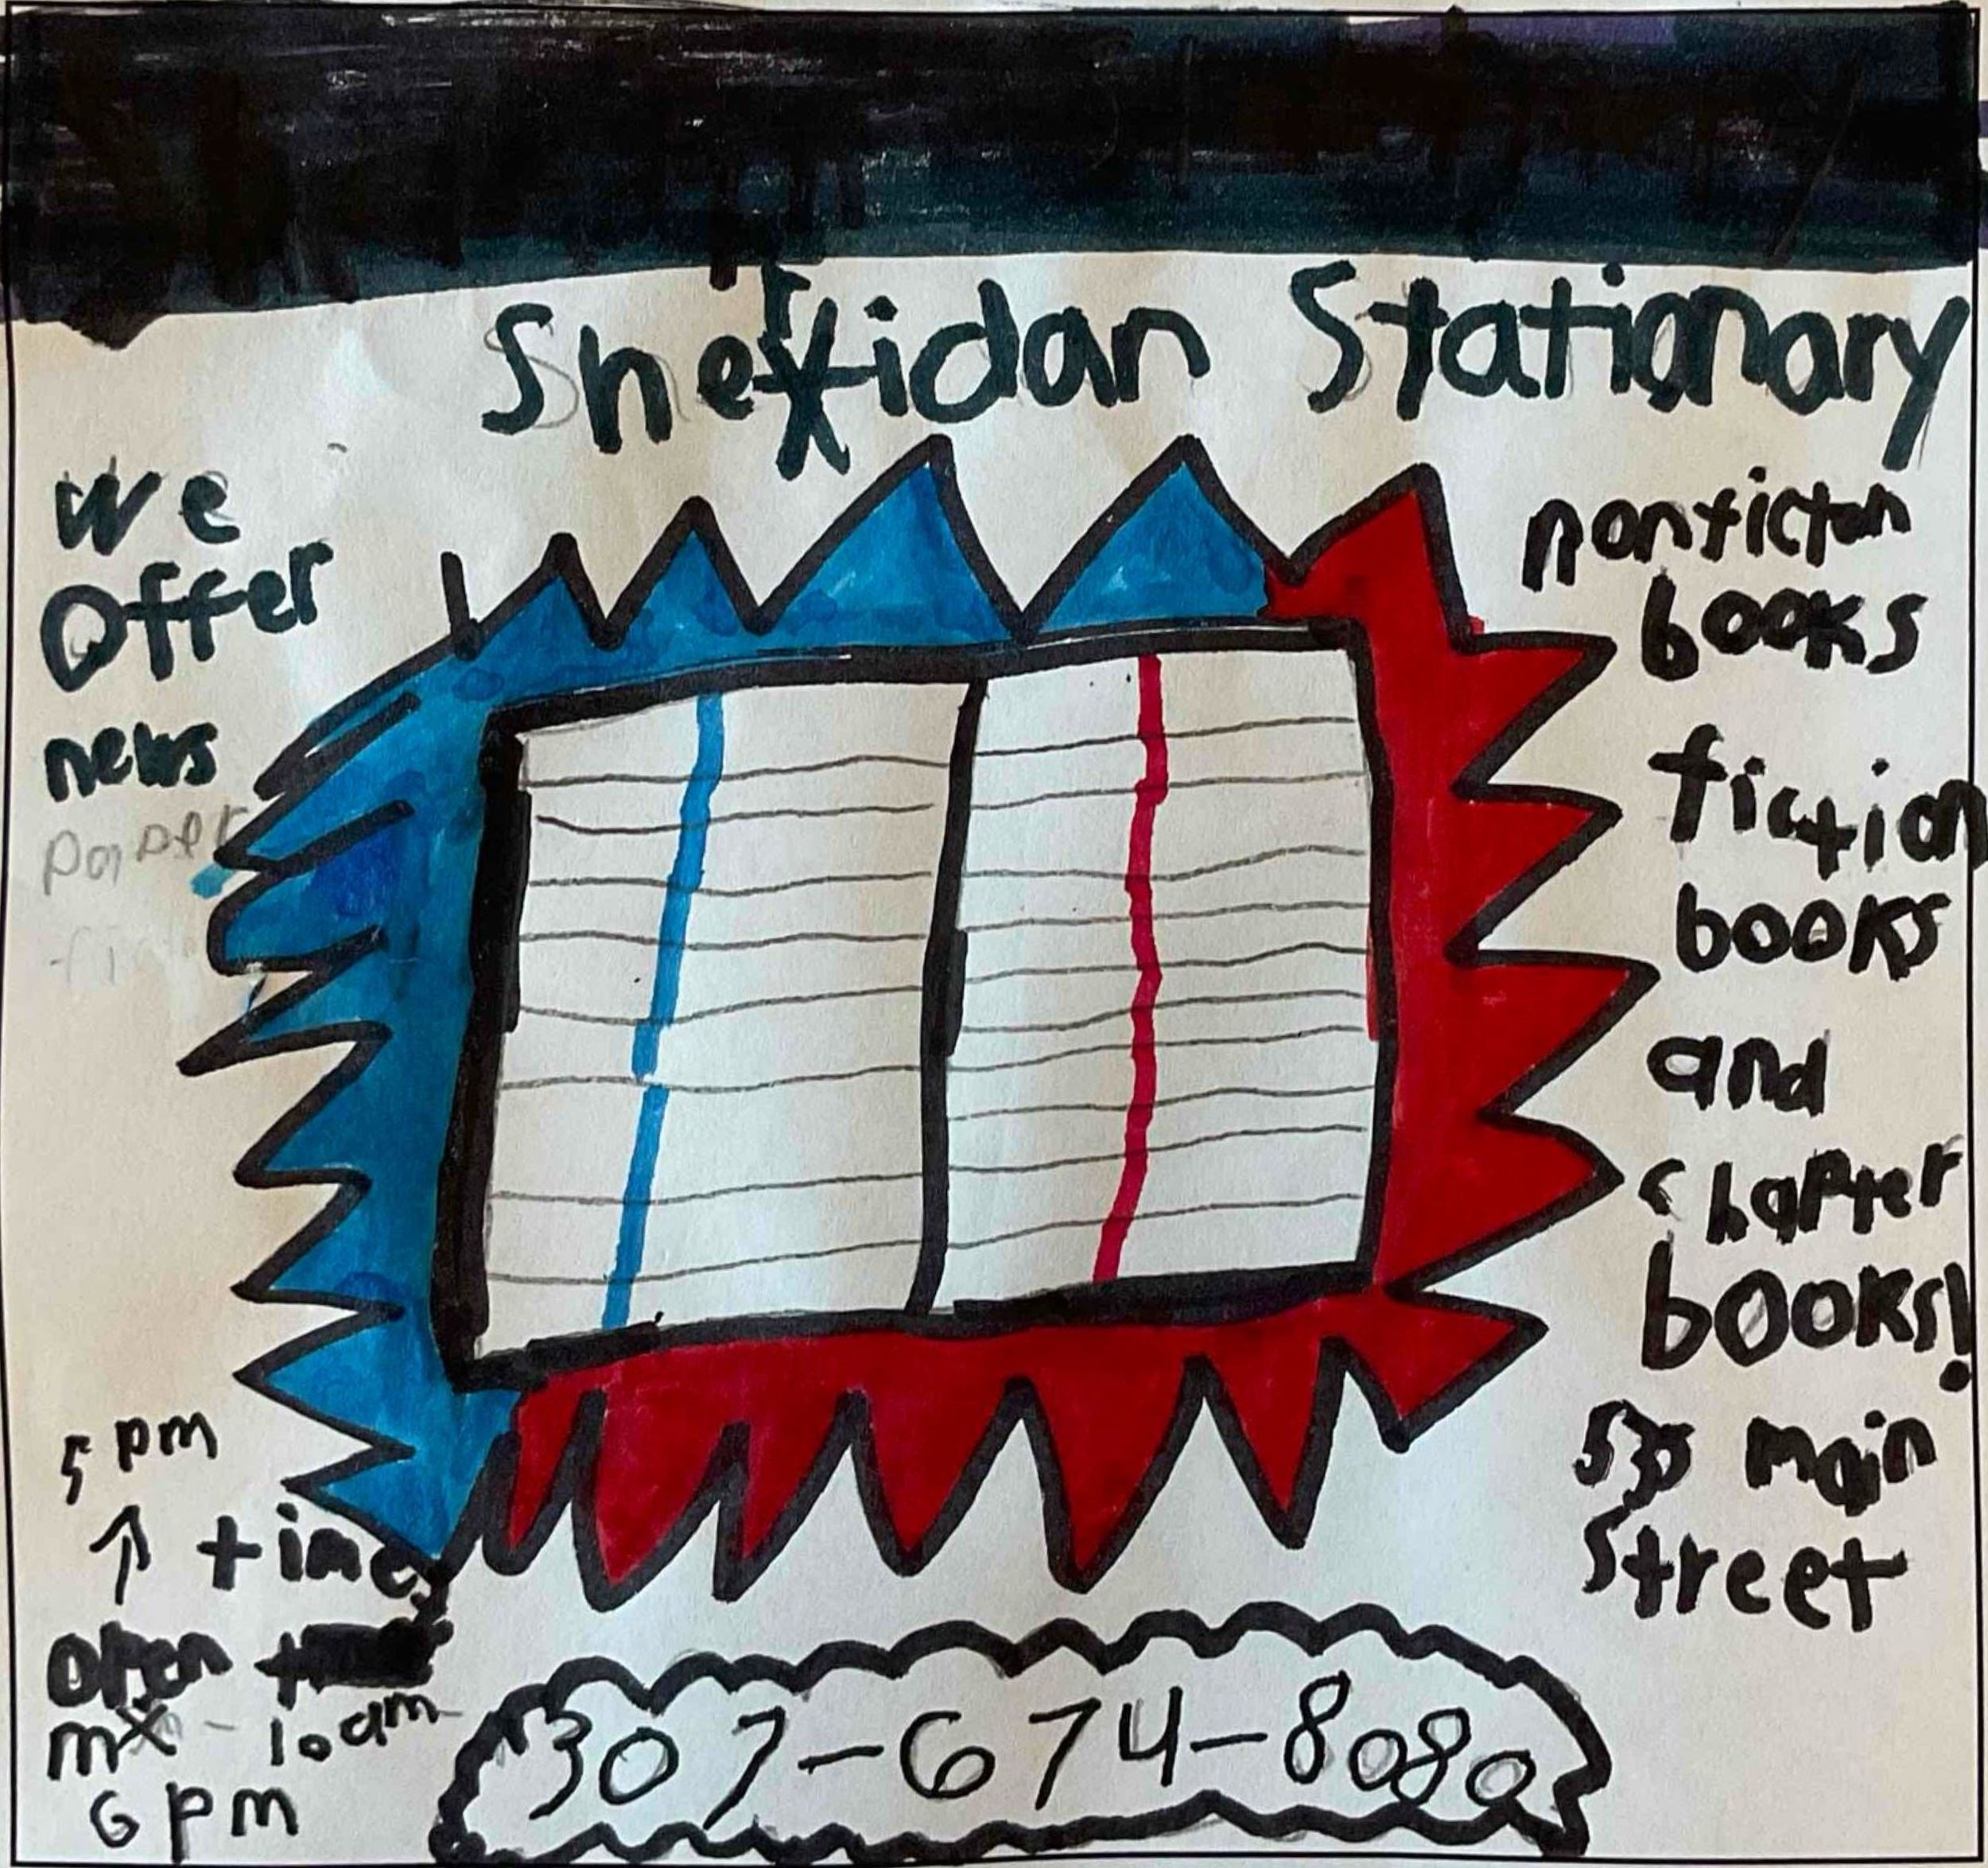 Sheridan Stationary
We
Offer
news
paper
nonficton
books
fiction
books
and
chapter
books!
Main
Street
5 pm
time
open
10 am
6 pm
307-674-8080